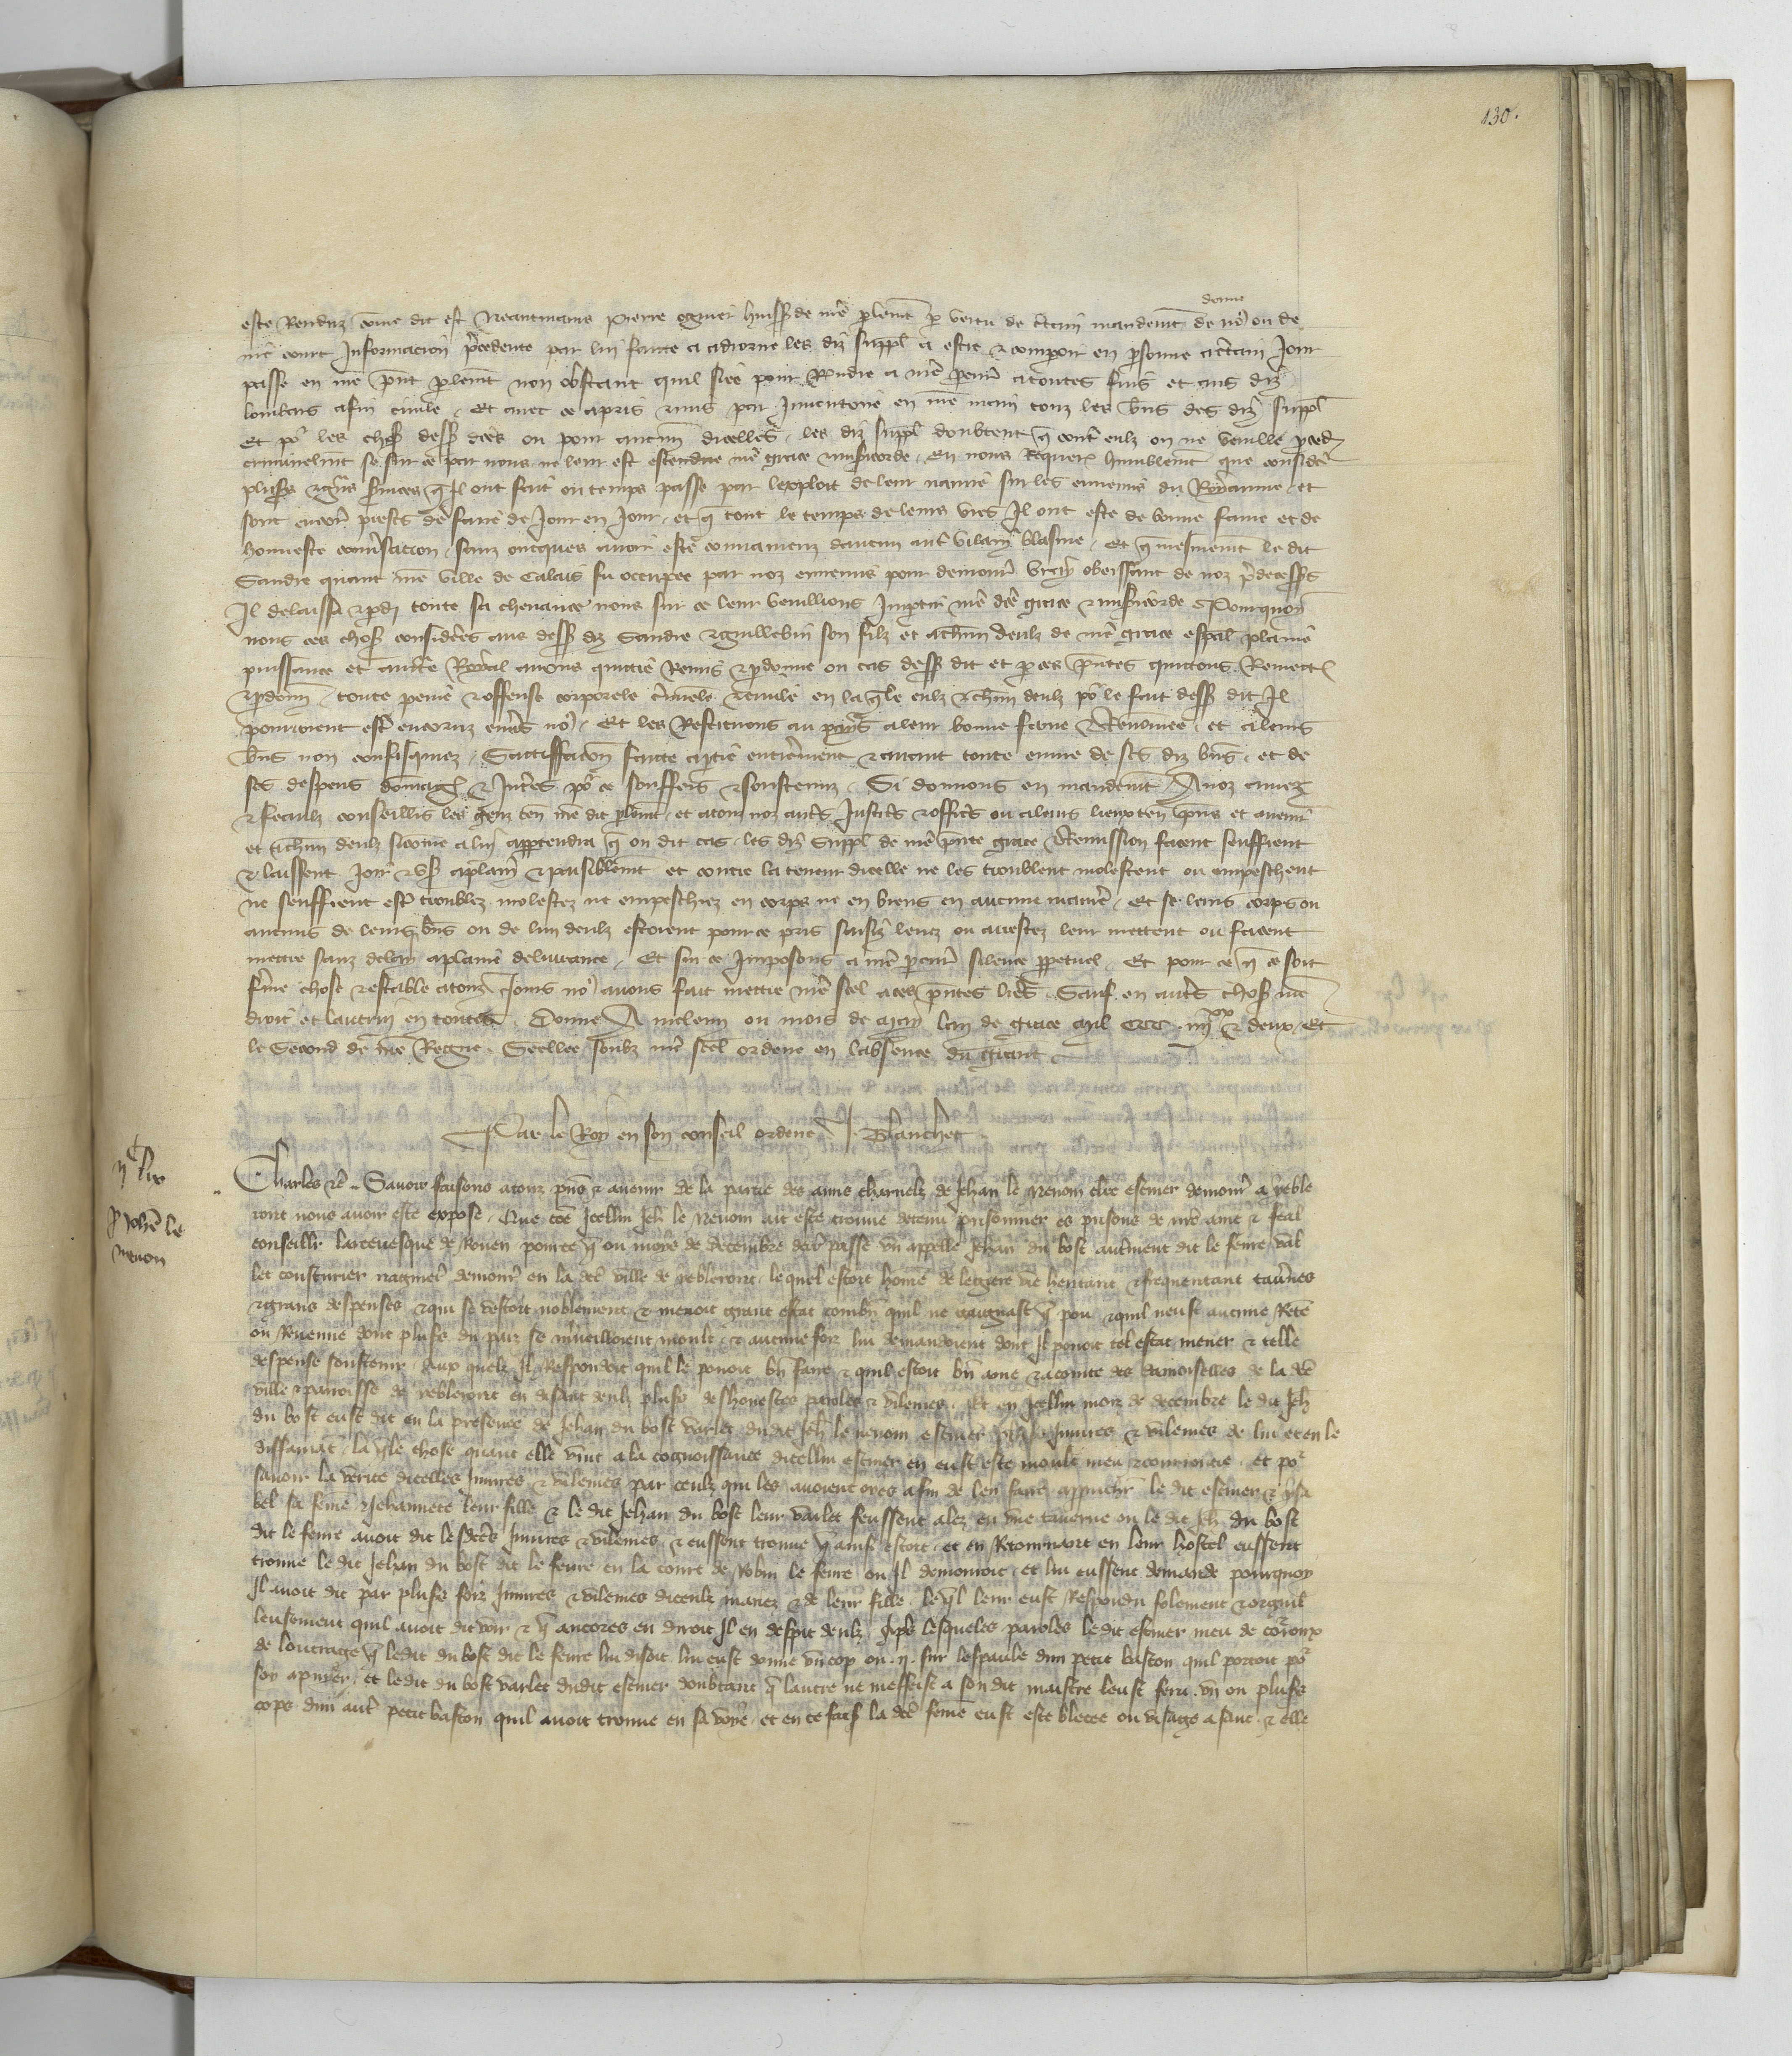 130.
donne
este Renduz comme dit est Neantmains Pierre ogmer huiss de nre plemt p vertu de certain mandemt de no ou de
nre court Informacion precedente par lui faicte a adiorne les diz suppl a estre & comparoir en psonne a certain Jour
passe en nre pnt plemt non obstant quil siee pour Rendre a nre procur a toutes fins et aus diz
lombars a fin civile Et avec ce a pris & mis par Inventoire en nre main touz les biens des diz suppl
Et po les choses dess dces ou pour aucune dicelles les diz suppl doubtent q contre eulz on ne veuille proced
criminelmt se sur ce par nous ne leur est estendue nre grace & misericorde En nous Requer humblemt que consider
pluss & grans services q Il ont fait ou temps passe par lexploit de leur navire sur les ennemis du Royaume et
sont encor prests de faire de Jour en Jour et q tout le temps de leurs vies Il ont este de bonne fame et de
honneste conversacion sanz oncques avoir este convaincuz daucun autre vilain blasme Et q mesmemt le dit
Sandre quant nre ville de Calais fu occupee par noz ennemis pour demourer vray obeissant de noz predecesseurs
Il delaissa & perdi toute sa chevance nous sur ce leur veuillions Impartir nre dce grace & misericorde Pourquoy
nous ces choses considerees aus dess diz Sandre & guillebin son filz et a chun deulz de nre grace espal plaine
puissance et auctorite Royal avons quictie Remis & pardonne ou cas dess dit et p ces pntes quictons Remectons
& pardonn toute peine & offense corporele criminele & civile en laqle eulz & chun deulz po le fait dess dit Il
pourroient estre encoruz envers no Et les Restituons au pays a leur bonne fame & Renomee et a leurs
biens non confisquez Satisffacion faicte a ptie entierement & avant toute euvre de ses diz biens et de
ses despens domages & Interes po ce souffers & soustenuz Si donnons en mandemt A noz amez
& feaulz conseillers les genz ten nre dit plemt et a touz noz autres Justiciers & officiers ou a leurs lieuxten pns et avenir
et a chun deulz si comme a lui appartendra q ou dit cas les diz suppl de nre pnte grace & Remission facent seuffrent
& laissent Joir & user a plain & paisiblemt et contre la teneur dicelle ne les troublent molestent ou empeschent
ne seuffrent estre troublez molestez ne empeschiez en corps ne en biens en aucune maniere Et se leurs corps ou
aucuns de leurs biens ou de lun deulz estoient pour ce pris saisiz levez ou arrestez leur mettent ou facent
mettre sanz delay a plaine delivrance Et sur ce Imposons a nre procur silence perpetuel Et pour ce q ce soit
ferme chose & estable a touz Jours no avons fait mettre nre scel a ces pntes lres Sauf en autres choses nre
droit et lautrui en toutes Donne A meleun ou mois de may lan de grace mil CCCC iiij xx & deux Et
le Second de nre Regne Seellee soubz nre scel ordene en labsence du grant
Par le Roy en son conseil ordene J. Blanchet
p Johe le
nenon
Charles &c Savoir faisons a touz pns & avenir de la partie des amis charnelz de Jehan le Nenom escuier demour a peble
ront nous avoir este expose Que come Icellui Jeh le Nenom ait este trouve detenu prisonnier es prisons de nre ame & feal
conseillr larcevesque de Rouen pource q ou mois de decembre derr passe un appelle Jehan du bost autrement dit le fevre val
let cousturier nagueres demour en la dce ville de pebleront lequel estoit home de legiere vie hentant & frequentant tavernes
& grans despenses & qui se vestoit noblement & menoit grant estat combn quil ne gaignast q pou & quil neust aucune Rente
ou Revenue dont pluss du pais se merveilloient moult & aucune foiz lui demandoient dont Il pouoit tel estat mener & telle
despense soustenir Aux quelz Il Respondoit quil le pouoit bn faire & quil estoit bn ame & acointe des damoiselles de la dce
ville & paroisse de pebleront en disant deulz pluss deshonestes paroles & vilenies Et en Icellui mois de decembre le dit Jeh
du bost eust dit en la presence de Jehan du bost varlet dudit Jeh le nenom escuier pluss Injures & vilenies de lui et en le
diffamant laqle chose quant elle vint a la cognoissance dicellui escuier en eust este moult meu & courroucie et po
savoir la verite dicelles Injures & vilenies par ceulz qui les avoient oyes afin de len faire approuchr le dit escuier & ysa
bel sa feme & Jehannete leur fille & le dit Jehan du bost leur varlet feussent alez en une taverne ou le dit Jeh du bost
dit le fevre avoit dit lesdces Injures & vilenies & eussent trouve q ainsi estoit et en Retournant en leur hostel eussent
trouve le dit Jehan du bost dit le fevre en la court de Robin le fevre ou Il demouroit et lui eussent demande pourquoy
Il avoit dit par pluss foiz Injures & vilenies diceulz mariez & de leur fille leql leur eust Respondu folement & orguil
leusement quil avoit dit voir & q ancores en diroit Il en despit deulz Apres lesqueles paroles le dit escuier meu de couroux
de loutrage q ledit du bost dit le fevre lui disoit lui eust donne un cop ou ij sur lespaule dun petit baston quil portoit po
soy apuier et ledit du bost varlet dudit escuier doubtant q lautre ne meffeist a son dit maistre leust feru un ou pluss
cops dun autre petit baston quil avoit trouve en sa voye et en ce fais la dce feme eust este blecee ou visage a sanc & elle